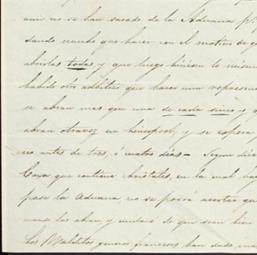 aun no se han sacado de la Aduana p.
dando mucho que hacer con el motivo de q
abrirlas todas y que luego hicieron lo mismo
habido otro adbitrio que hacer una represen
se abran mas que una de cada cinco y q
abran otras en y se espera
no antes de tres, ó cuatro dias - Segun dice
Caxa que contiene cristales, en la cual hay
pase la Aduana, no se podra acertar que
mana las abra, y cuidará de que sean bien
Los Malditos generos franceses han dado mu